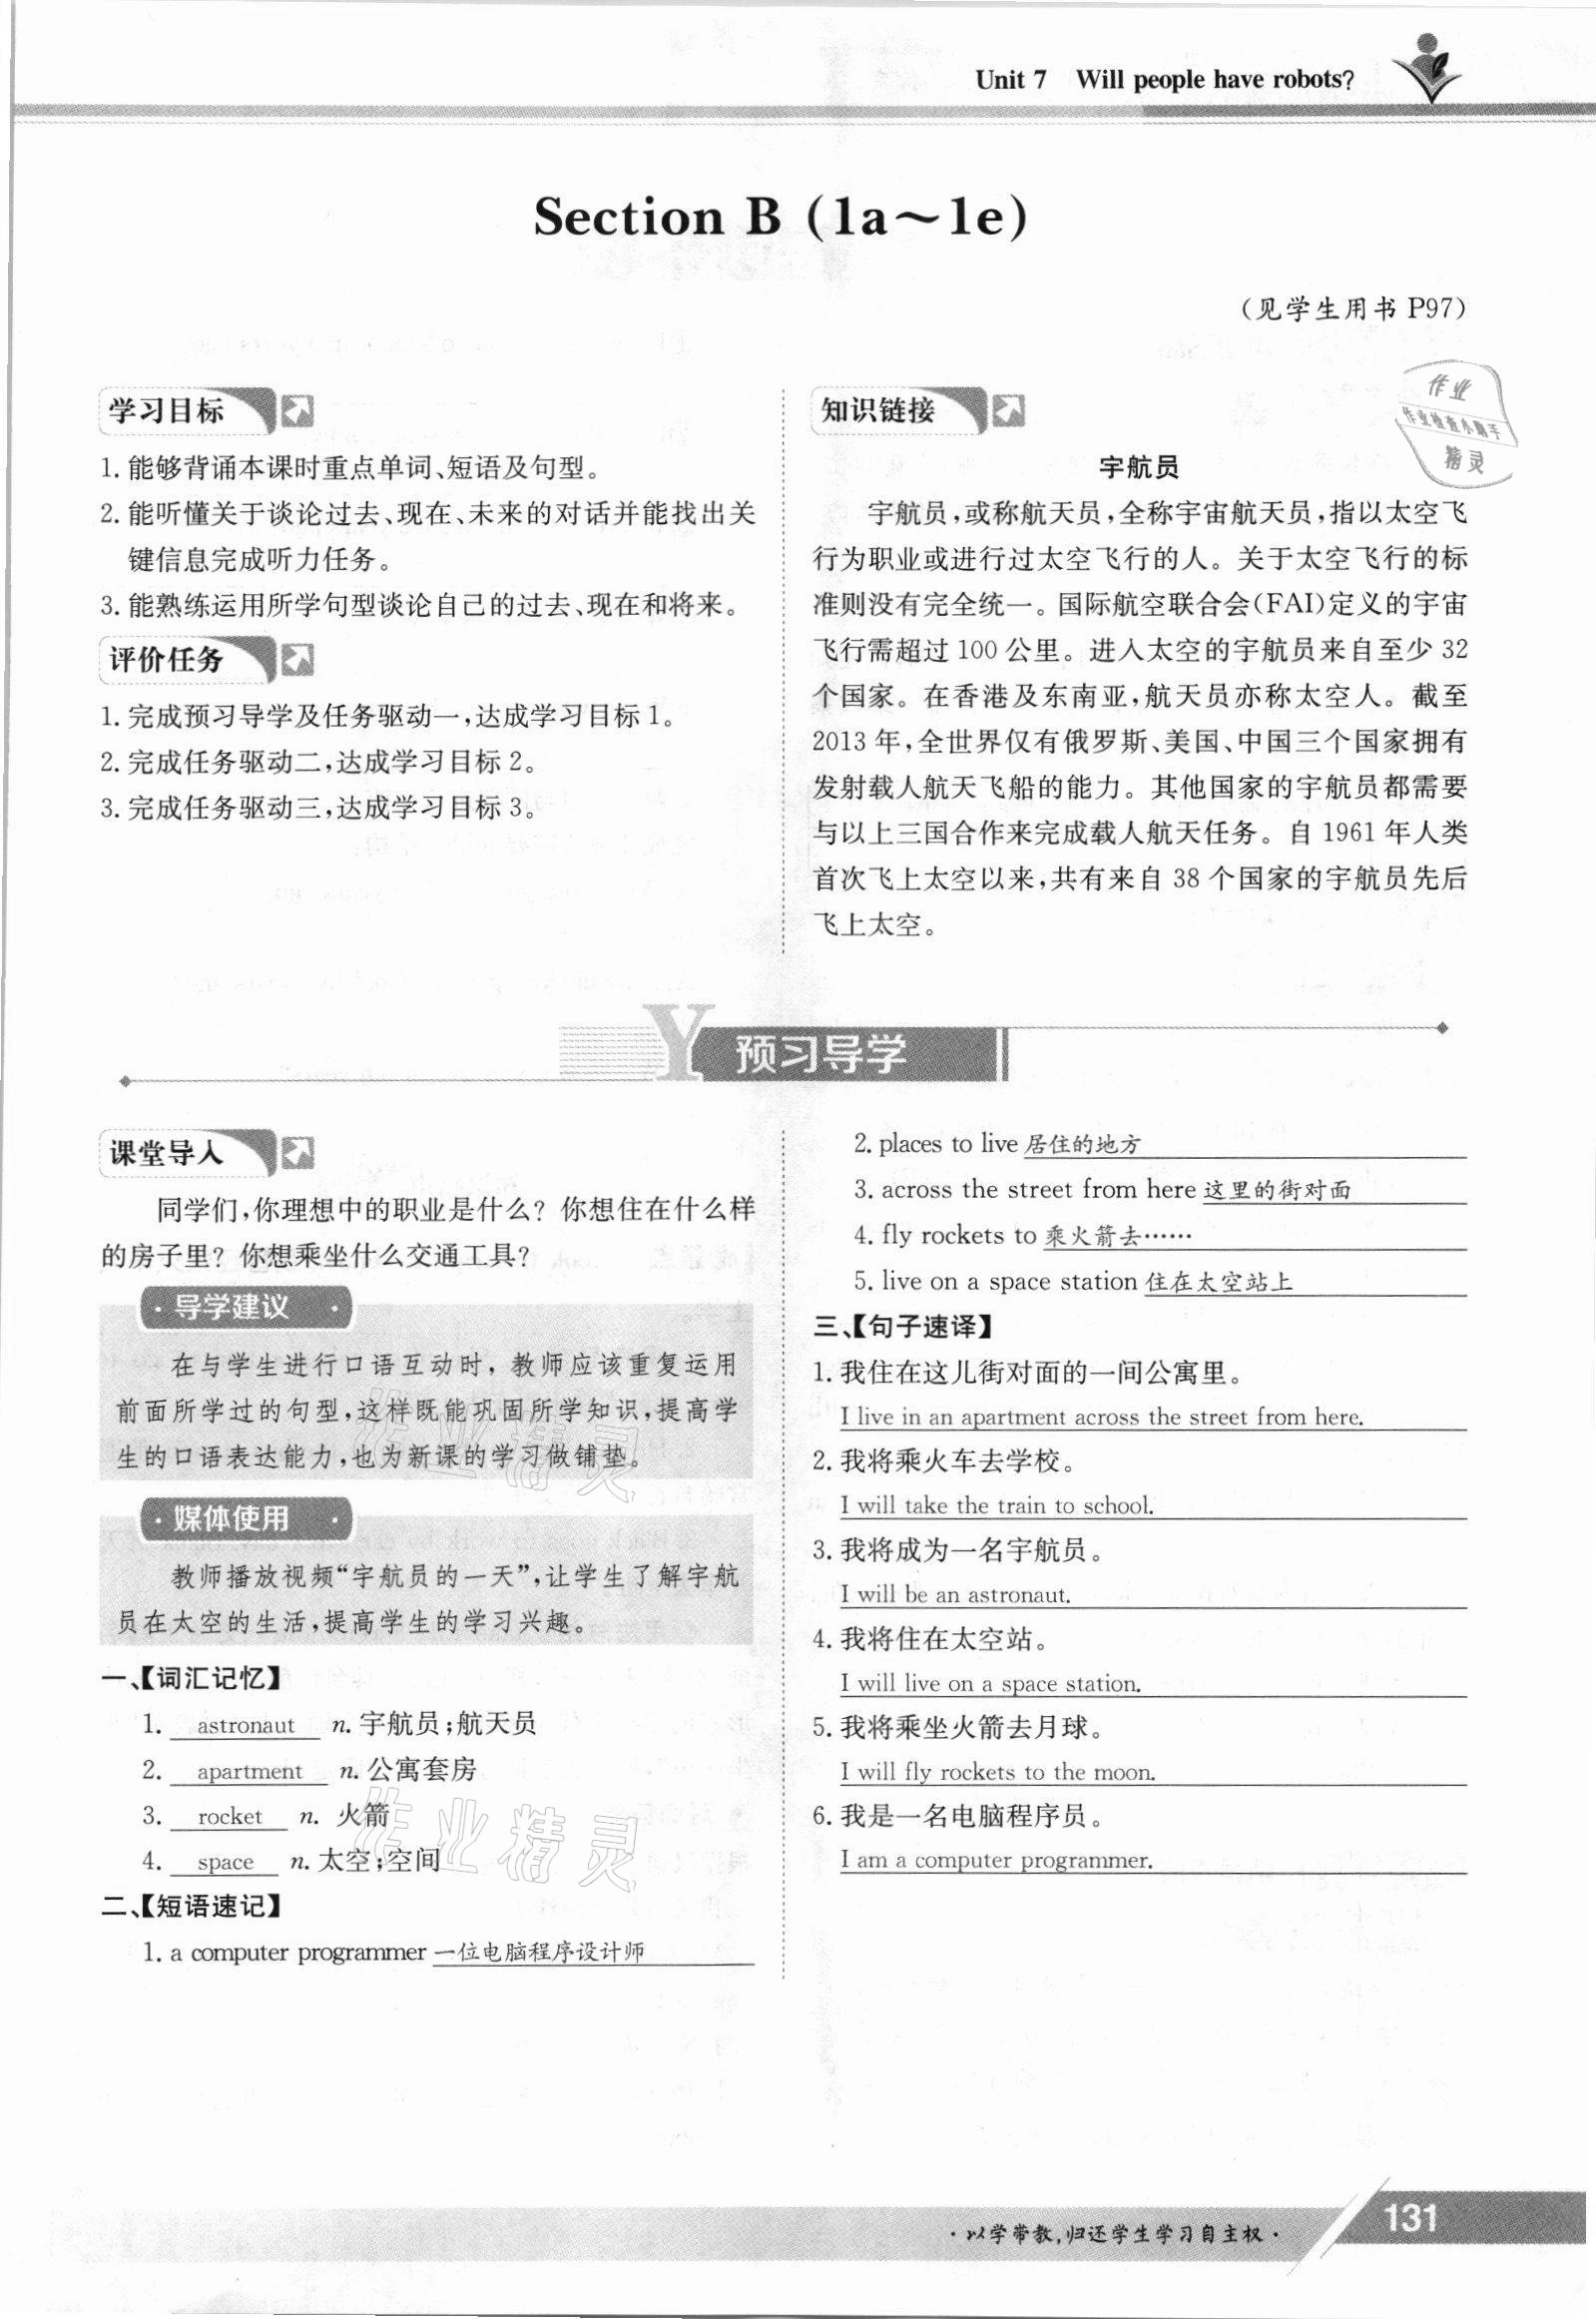 Unit 7 Will people have robots?
Section B (1a～1e)
(见学生用书 P97)
学习目标
1. 能够背诵本课时重点单词、短语及句型。
2. 能听懂关于谈论过去、现在、未来的对话并能找出关
键信息完成听力任务。
3. 能熟练运用所学句型谈论自己的过去、现在和将来。
评价任务
1. 完成预习导学及任务驱动一,达成学习目标 1。
2. 完成任务驱动二,达成学习目标 2。
3. 完成任务驱动三,达成学习目标 3。
知识链接
作业
作业检查小助手
精灵
宇航员
宇航员,或称航天员,全称宇宙航天员,指以太空飞
行为职业或进行过太空飞行的人。关于太空飞行的标
准则没有完全统一。国际航空联合会(FAI)定义的宇宙
飞行需超过 100 公里。进入太空的宇航员来自至少 32
个国家。在香港及东南亚,航天员亦称太空人。截至
2013 年,全世界仅有俄罗斯、美国、中国三个国家拥有
发射载人航天飞船的能力。其他国家的宇航员都需要
与以上三国合作来完成载人航天任务。自 1961 年人类
首次飞上太空以来,共有来自 38 个国家的宇航员先后
飞上太空。
Y 预习导学
课堂导入
同学们,你理想中的职业是什么? 你想住在什么样
的房子里? 你想乘坐什么交通工具?
·导学建议·
在与学生进行口语互动时,教师应该重复运用
前面所学过的句型,这样既能巩固所学知识,提高学
生的口语表达能力,也为新课的学习做铺垫。
·媒体使用·
教师播放视频“宇航员的一天”,让学生了解宇航
员在太空的生活,提高学生的学习兴趣。
一、【词汇记忆】
1. astronaut n. 宇航员;航天员
2. apartment n. 公寓套房
3. rocket n. 火箭
4. space n. 太空;空间
二、【短语速记】
1. a computer programmer 一位电脑程序设计师
2. places to live 居住的地方
3. across the street from here 这里的街对面
4. fly rockets to 乘火箭去……
5. live on a space station 住在太空站上
三、【句子速译】
1. 我住在这儿街对面的一间公寓里。
I live in an apartment across the street from here.
2. 我将乘火车去学校。
I will take the train to school.
3. 我将成为一名宇航员。
I will be an astronaut.
4. 我将住在太空站。
I will live on a space station.
5. 我将乘坐火箭去月球。
I will fly rockets to the moon.
6. 我是一名电脑程序员。
I am a computer programmer.
作业精灵
作业精灵
·以学带教,归还学生学习自主权·
131